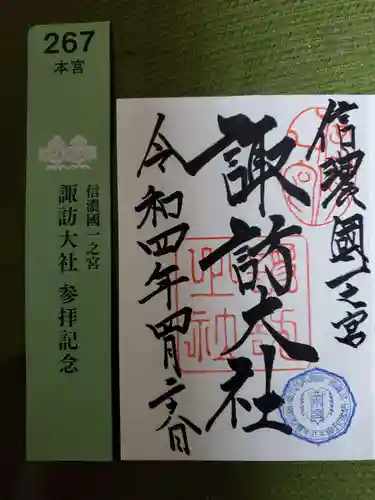 267
本宮
信濃國一之宮
諏訪大社 参拝記念
信濃國一之宮
諏訪大社
令和四年四月二六日